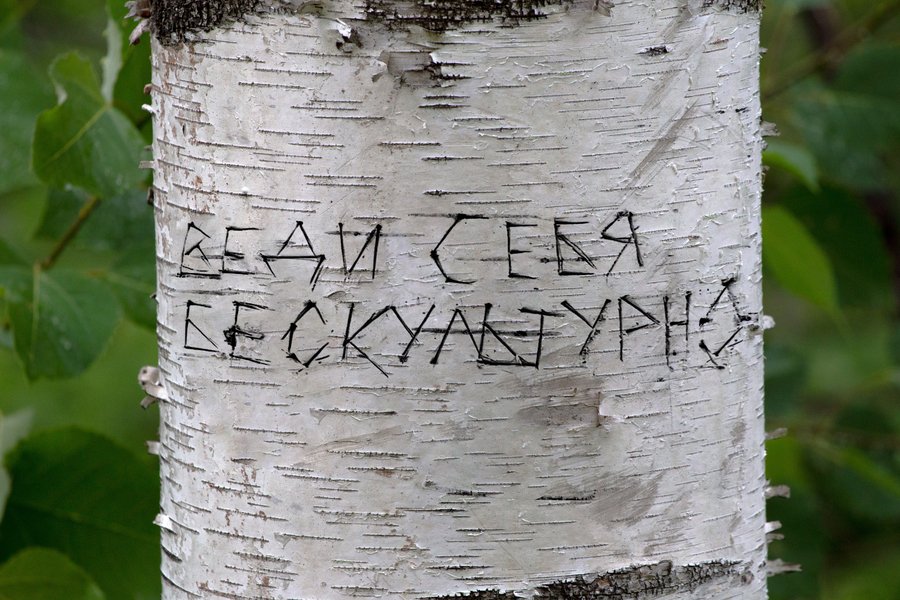 ВЕДИ СЕБЯ
БЕСКУЛЬТУРНО